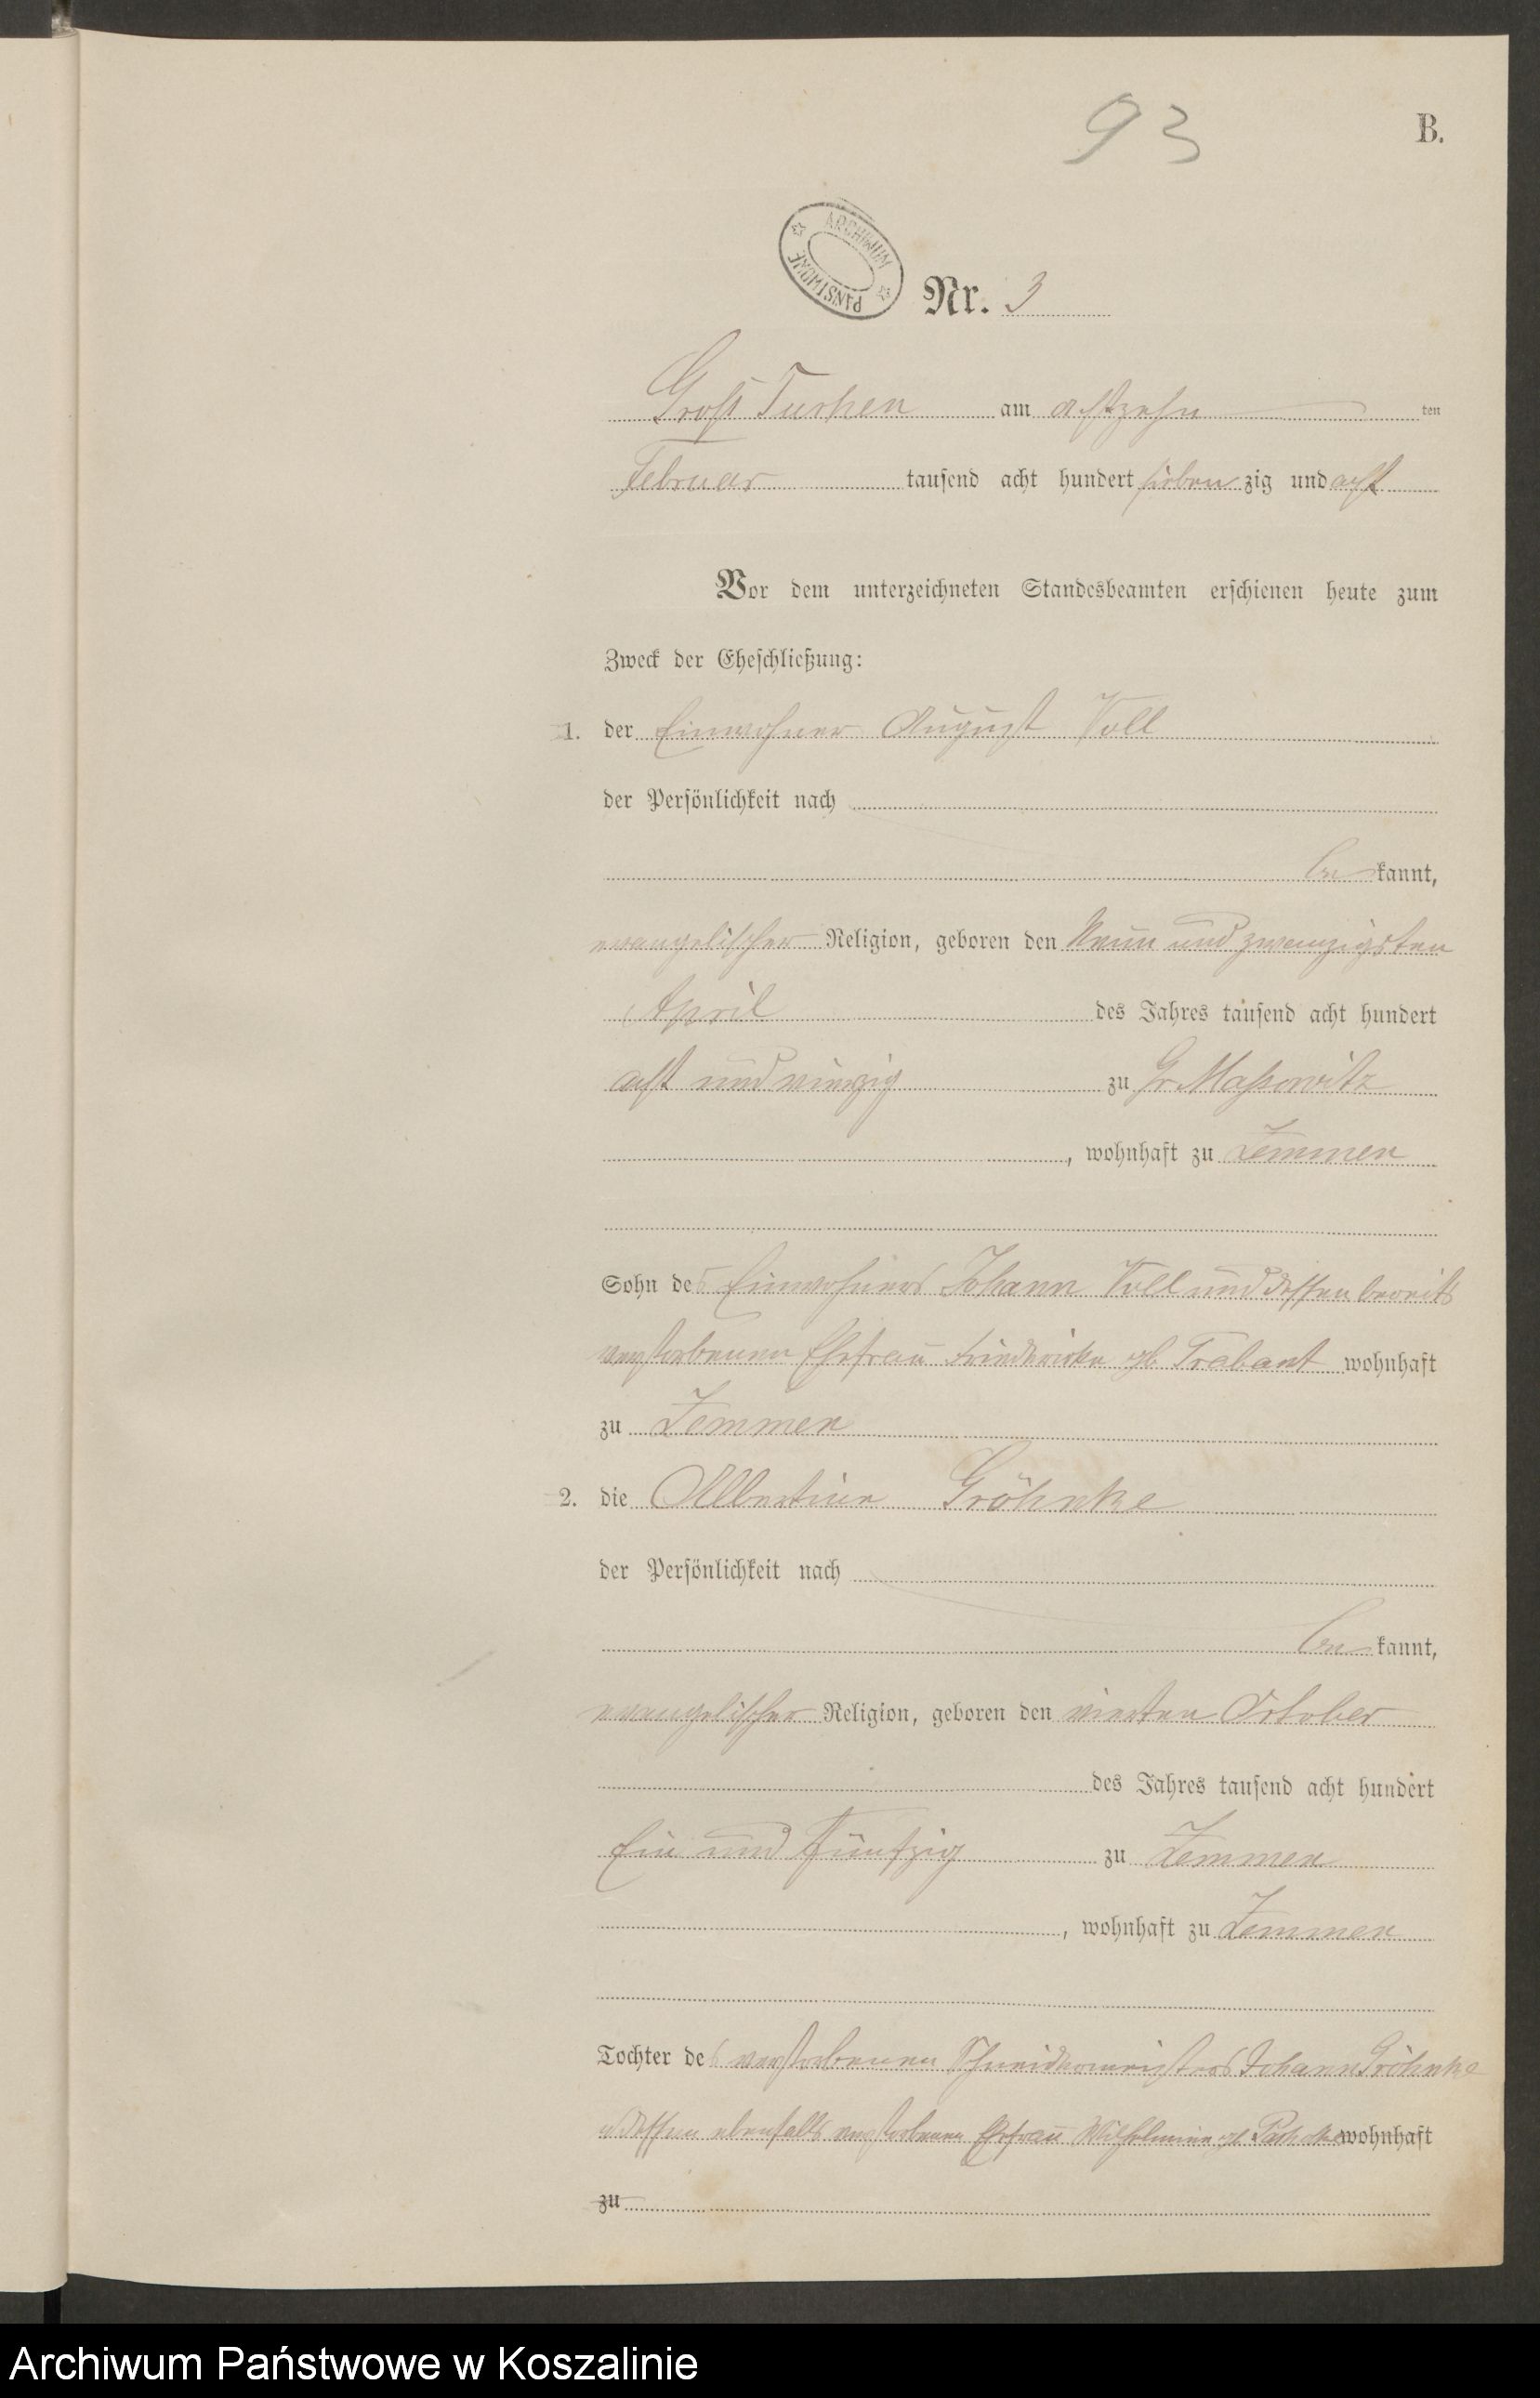 93
B.
ARCHIWUM PAŃSTWOWE
Nr. 3
Groß Tuchen am achtzehnten
Februar tausend acht hundert siebenzig und acht
Vor dem unterzeichneten Standesbeamten erschienen heute zum
Zweck der Eheschließung:
1. der Einwohner August Voll
der Persönlichkeit nach
bekannt,
evangelischer Religion, geboren den Neun und zwanzigsten
April des Jahres tausend acht hundert
acht und vierzig zu Gr. Massowitz
, wohnhaft zu Zemmen
Sohn des Einwohners Johann Voll und dessen bereits
verstorbenen Ehefrau Friedericke gb Trabant wohnhaft
zu Zemmen
2. die Albertine Gröhnke
der Persönlichkeit nach
bekannt,
evangelischer Religion, geboren den vierten October
des Jahres tausend acht hundert
Ein und fünfzig zu Zemmen
, wohnhaft zu Zemmen
Tochter des verstorbenen Schneidermeisters Johann Gröhnke
u dessen ebenfalls verstorbenen Ehefrau Wilhelmine gb wohnhaft
zu
Archiwum Państwowe w Koszalinie